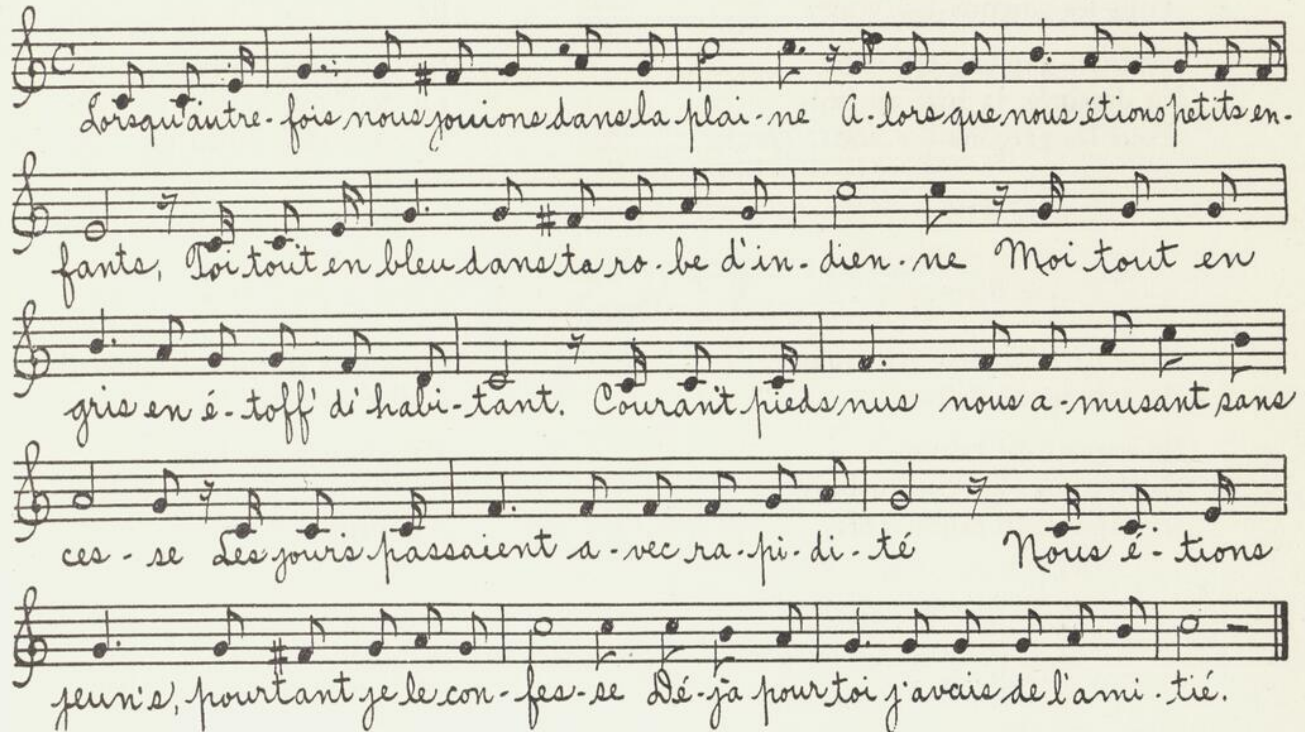 Lorsqu'autre-fois nous jouions dans la plai-ne A-lors que nous étions petits en-
fants, Toi tout en bleu dans ta ro-be d'in-dien-ne Moi tout en
gris en é-toff' d'habi-tant. Courant pieds nus nous a-musant sans
ces-se Les jours passaient a-vec ra-pi-di-té Nous é-tions
jeun's, pourtant je le con-fes-se Dé-jà pour toi j'avais de l'ami-tié.